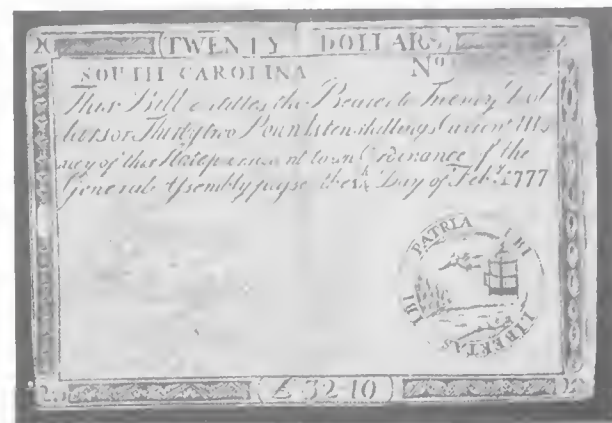 TWENTY DOLLARS
SOUTH CAROLINA No
This Bill entitles the Bearer to Twenty Dol
lars or Thirty two Pounds ten shillings Current Mo
ney of this State pursuant to an Ordinance of the
General Assembly the Day of Feb.y 1777
UBI LIBERTAS IBI PATRIA
£ 32 10